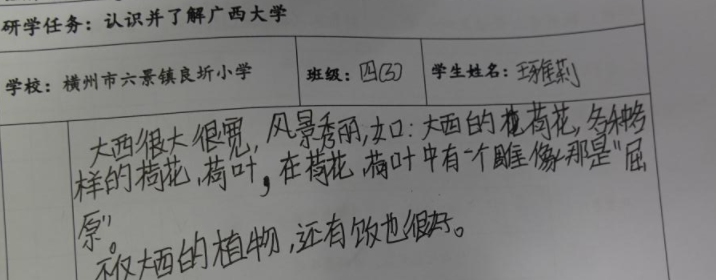 研学任务：认识并了解广西大学
学校：横州市六景镇良圻小学 班级：四(3) 学生姓名：王雅莉
大西很大很宽，风景秀丽，如：大西的荷花，各种各
样的荷花，荷叶，在荷花，荷叶中有一个雕像那是“屈
原”。
不仅大西的植物，还有饭也很好。